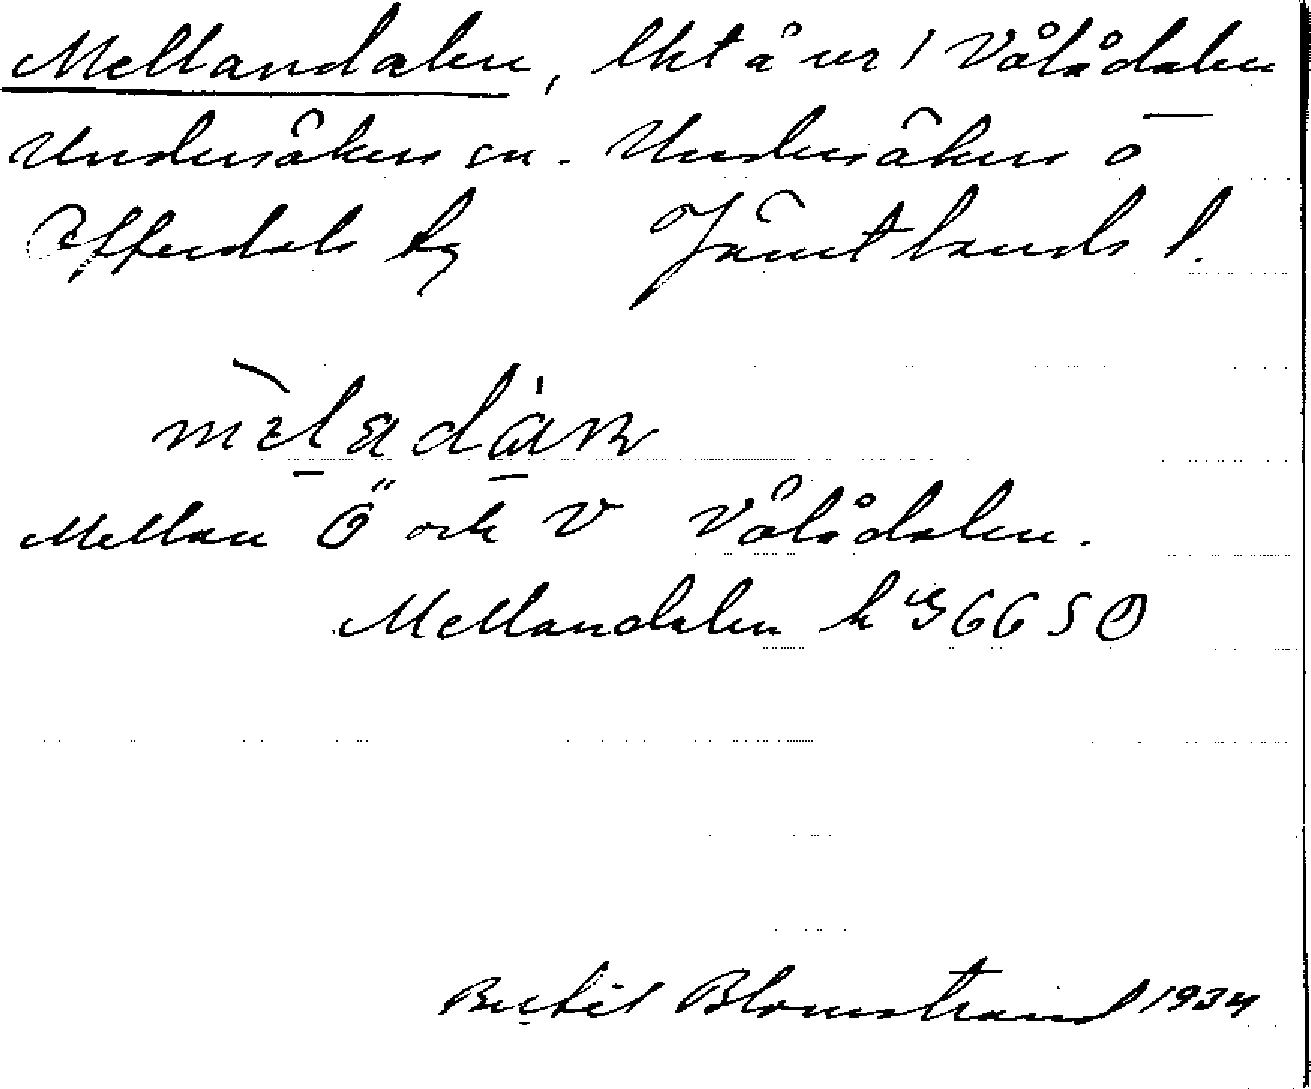 Mellandalen, lht å nr 1 Vålådalen
Undersåkers sn. Undersåkers
Offerdals tg Jämtlands l.
Mellan Ö och V Vålådalen.
Mellandalen k
Bertil Blomstrand 1934